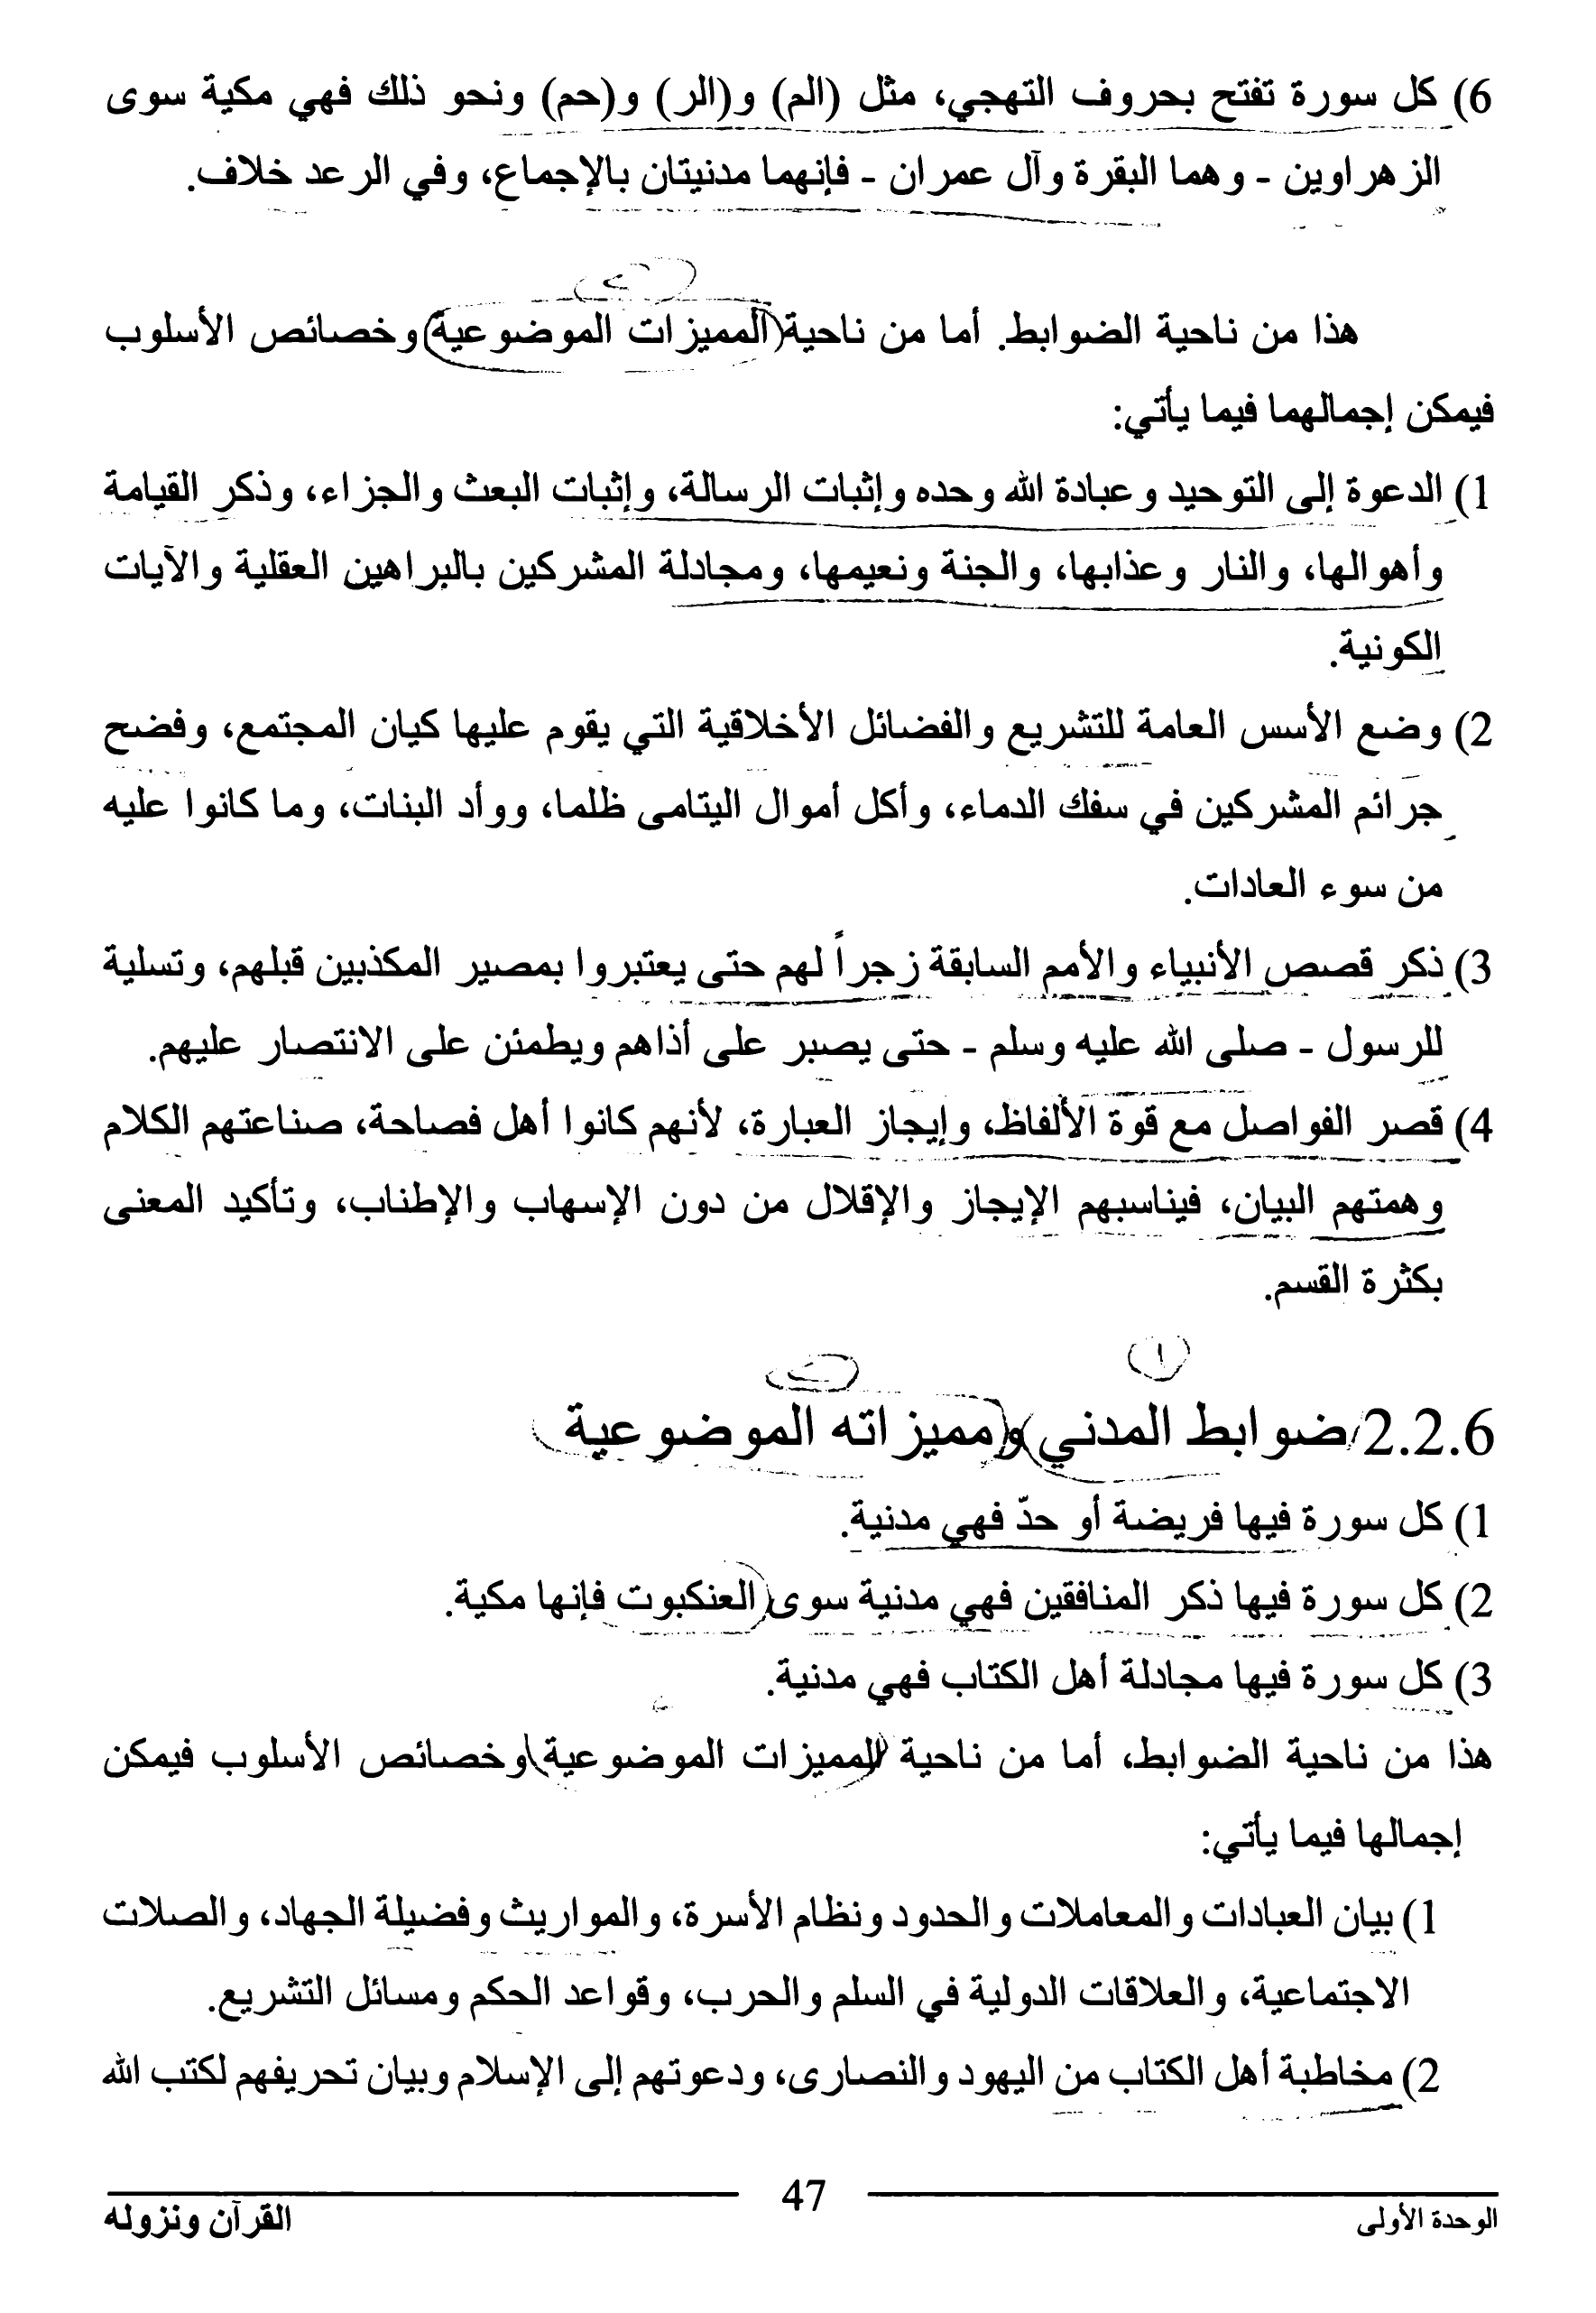 6) كل سورة تفتح بحروف التهجي، مثل (الم) و(الر) و(حم) ونحو ذلك فهي مكية سوى
الزهراوين - وهما البقرة وآل عمران - فإنهما مدنيتان بالإجماع، وفي الرعد خلاف.
هذا من ناحية الضوابط. أما من ناحية (المميزات الموضوعية) وخصائص الأسلوب
فيمكن إجمالهما فيما يأتي:
1) الدعوة إلى التوحيد وعبادة الله وحده وإثبات الرسالة، وإثبات البعث والجزاء، وذكر القيامة
وأهوالها، والنار وعذابها، والجنة ونعيمها، ومجادلة المشركين بالبراهين العقلية والآيات
الكونية.
2) وضع الأسس العامة للتشريع والفضائل الأخلاقية التي يقوم عليها كيان المجتمع، وفضح
جرائم المشركين في سفك الدماء، وأكل أموال اليتامى ظلما، ووأد البنات، وما كانوا عليه
من سوء العادات.
3) ذكر قصص الأنبياء والأمم السابقة زجراً لهم حتى يعتبروا بمصير المكذبين قبلهم، وتسلية
للرسول - صلى الله عليه وسلم - حتى يصبر على أذاهم ويطمئن على الانتصار عليهم.
4) قصر الفواصل مع قوة الألفاظ، وإيجاز العبارة، لأنهم كانوا أهل فصاحة، صناعتهم الكلام
وهمتهم البيان، فيناسبهم الإيجاز والإقلال من دون الإسهاب والإطناب، وتأكيد المعنى
بكثرة القسم.
١
2.2.6 ضوابط المدني ومميزاته الموضوعية
1) كل سورة فيها فريضة أو حدّ فهي مدنية.
2) كل سورة فيها ذكر المنافقين فهي مدنية سوى العنكبوت فإنها مكية.
3) كل سورة فيها مجادلة أهل الكتاب فهي مدنية.
هذا من ناحية الضوابط، أما من ناحية المميزات الموضوعية وخصائص الأسلوب فيمكن
إجمالها فيما يأتي:
1) بيان العبادات والمعاملات والحدود ونظام الأسرة، والمواريث وفضيلة الجهاد، والصلات
الاجتماعية، والعلاقات الدولية في السلم والحرب، وقواعد الحكم ومسائل التشريع.
2) مخاطبة أهل الكتاب من اليهود والنصارى، ودعوتهم إلى الإسلام وبيان تحريفهم لكتب الله
الوحدة الأولى
47
القرآن ونزوله